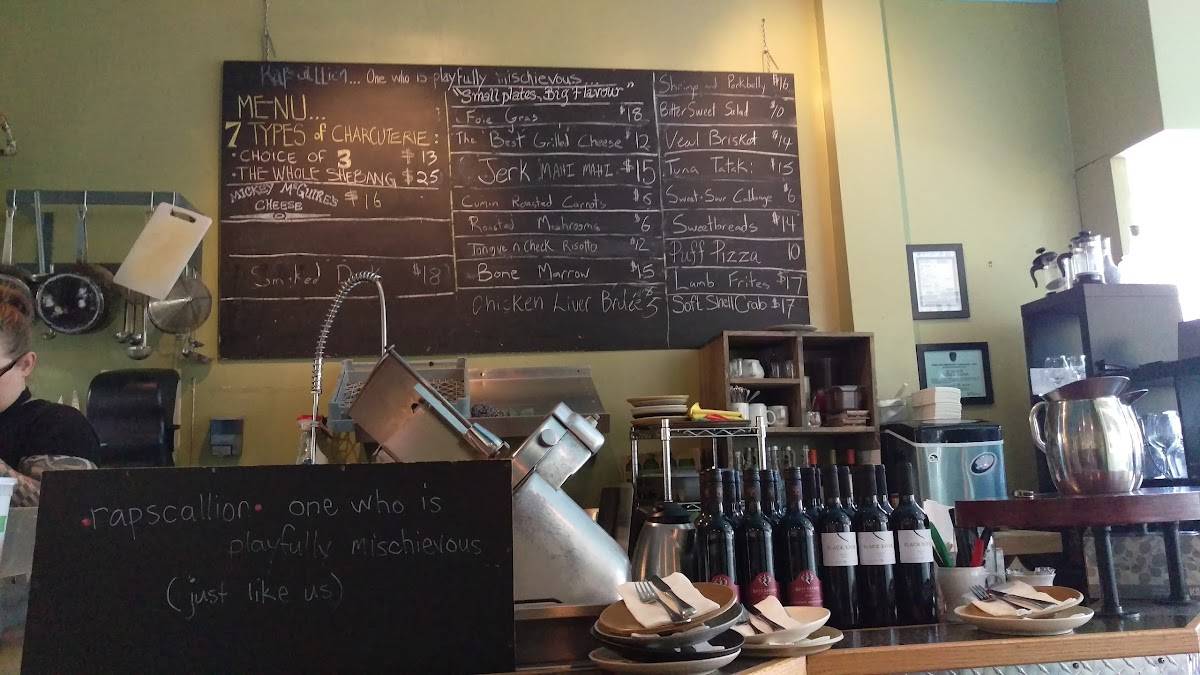 Rapscallion... One who is playfully mischievous...
MENU...
7 TYPES of CHARCUTERIE:
• CHOICE OF 3 $13
• THE WHOLE SHEBANG $25
MICKEY McGUIRE'S CHEESE $16
Smoked $18
"Small plates, Big Flavour"
Foie Gras $18
The Best Grilled Cheese $12
Jerk MAHI MAHI $15
Cumin Roasted Carrots
Roasted Mushrooms $6
Tongue n Cheek Risotto $12
Bone Marrow $15
Chicken Liver Brulée
Shrimp and Porkbelly $16
Bitter Sweet Salad
Veal Brisket $14
Tuna Tataki $15
Sweet + Sour Cabbage $6
Sweetbreads $14
Puff Pizza 10
Lamb Frites $17
Soft Shell Crab $17
• rapscallion • one who is
playfully mischievous
(just like us)
BLACK
BLACK
BLACK